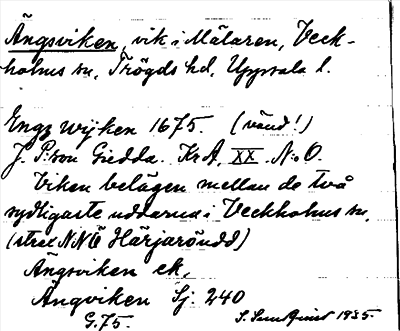 Ängsviken, vik i Mälaren, Veck-
holms sn, Trögds hd, Uppsala l.
Engz wijken 1675. (vänd!)
J. P:son Giedda. KrA, XX. N:o 0.
Viken belägen mellan de två
sydligaste uddarna i Veckholms sn.
(strax NNÖ Härjaröudd)
Ängsviken ek.
Ängviken Sj. 240
G.75. S. Sundquist 1935.